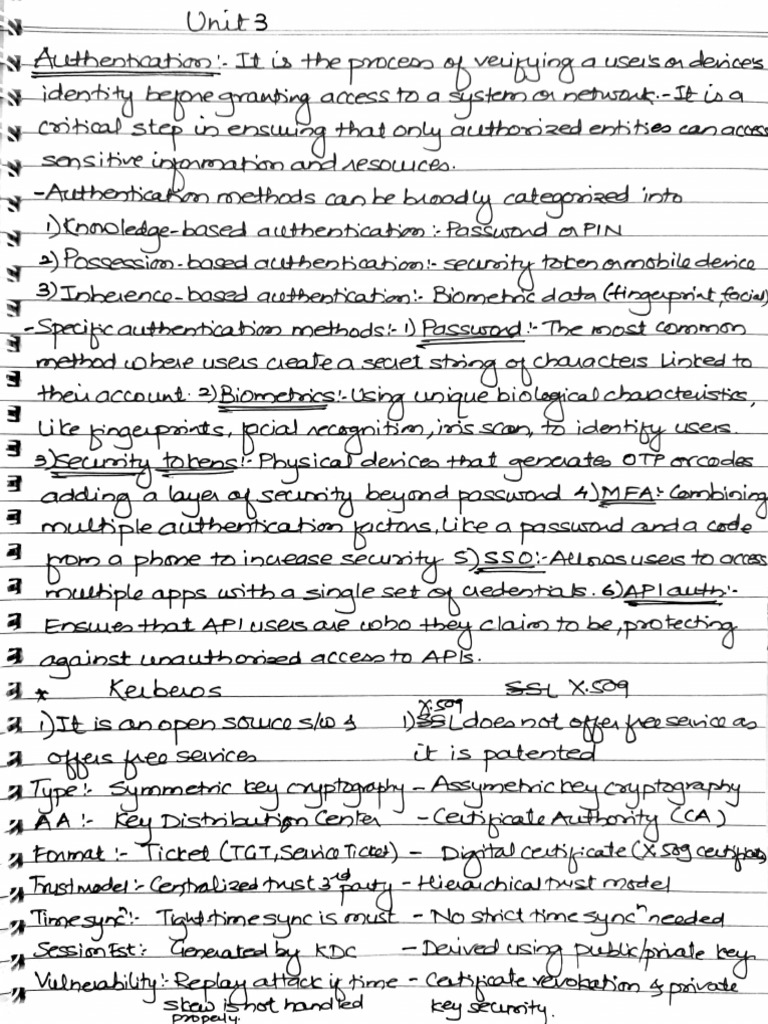 Unit 3
Authentication:- It is the process of verifying a user's or device's
identity before granting access to a system or network.-It is a
critical step in ensuring that only authorized entities can access
sensitive information and resources.
-Authentication methods can be broadly categorized into
1) Knowledge-based authentication:- Password or PIN
2) Possession-based authentication:- security token or mobile device
3) Inherence-based authentication:- Biometric data (fingerprint, facial)
-Specific authentication methods:- 1) Password:- The most common
method where users create a secret string of characters linked to
their account. 2) Biometrics:- Using unique biological characteristics,
like fingerprints, facial recognition, iris scan, to identify users.
3) Security tokens:- Physical devices that generates OTP or codes
adding a layer of security beyond password 4) MFA:- Combining
multiple authentication factors, like a password and a code
from a phone to increase security 5) SSO:- Allows users to access
multiple apps with a single set of credentials. 6) API auth:-
Ensures that API users are who they claim to be, protecting
against unauthorized access to APIs.
* Kerberos SSL X.509
1) It is an open source s/w & 1) X.509 SSL does not offer free service as
offers free services it is patented
Type:- Symmetric key cryptography - Assymetric key cryptography
AA:- Key Distribution Center - Certificate Authority (CA)
Format:- Ticket (TGT, Service Ticket) - Digital certificate (X.509 certificates)
Trust model:- Centralized trust 3rd party - Hierarchical trust model
Time syncn:- Tight time sync is must - No strict time syncn needed
Session Est:- Generated by KDC - Derived using public/private key
Vulnerability:- Replay attack if time - Certificate revokation & private
skew is not handled key security.
properly.